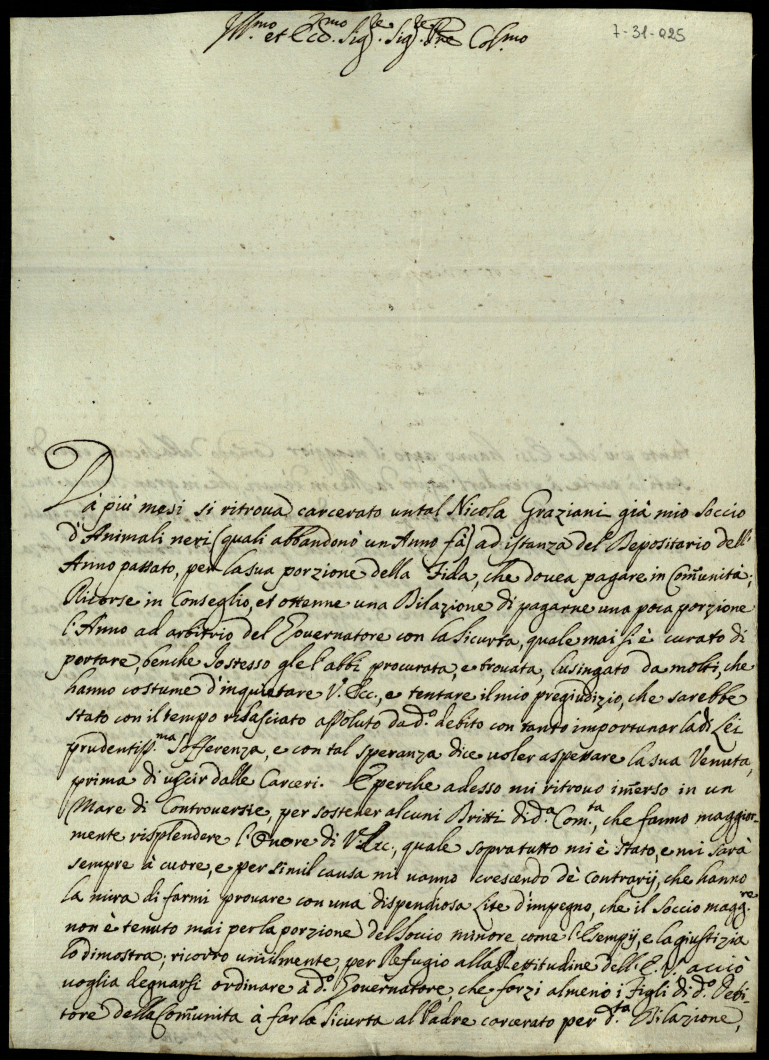 Ill.mo et Ecc.mo Sig.re Sig.re P.ne Col.mo
7-31-025
Dà più mesi si ritroua carcerato un tal Nicola Graziani già mio soccio
d'Animali neri (quali abbandonò un Anno fà) ad istanza del Depositario dell'
Anno passato, per la sua porzione della Fida, che douea pagare in Com̃unità;
Ricorse in Conseglio, et ottenne una Dilazione di pagarne una poca porzione
l'Anno ad arbitrio del Gouernatore con la sicurtà, quale mai si è curato di
portare, benche Io stesso gle l'abbi procurata, e trouata, lusingato da molti, che
hanno costume d'inquietare V. Ecc., e tentare il mio pregiudizio, che sarebbe
stato con il tempo rilasciato assoluto da d.o debito con tanto importunar la di Lei
prudentiss.ma Sofferenza, e con tal speranza dice uoler aspettare la sua Venuta,
prima di uscir dalle Carceri. E perche adesso mi ritrouo im̃erso in un
Mare di Controuersie, per sostener alcuni Dritti di d.a Com.tà, che fanno maggior-
mente risplendere l'Onore di V. Ecc., quale sopra tutto mi è stato, e mi sarà
sempre à cuore, e per simil causa mi uanno crescendo de Contrarij, che hanno
la mira di farmi prouare con una dispendiosa Lite d'impegno, che il soccio magg.re
non è tenuto mai per la porzione del socio minore come l'Esempij, e la giustizia
lo dimostra; ricorro umilmente per Refugio alla Rettitudine dell'E. V. acciò
uoglia degnarsi ordinare à d.o Gouernatore che forzi almeno i Figli di d.o Debi-
tore della Com̃unita à far la Sicurta al Padre carcerato per d.ta Dilazione,